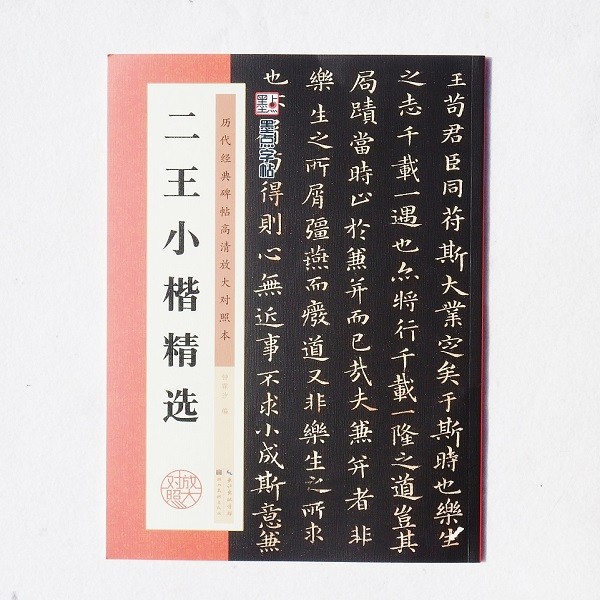 二王小楷精选
历代经典碑帖高清放大对照本
编
长江出版传媒
湖北美术出版社
放大对照
墨点
墨点字帖
王苟君臣同符斯大業定矣于斯時也樂生
之志千載一遇也亦將行千載一隆之道豈其
局蹟當時止於兼并而已哉夫兼并者非
樂生之所屑彊燕而廢道又非樂生之所求
也不苟得則心無近事不求小成斯意兼